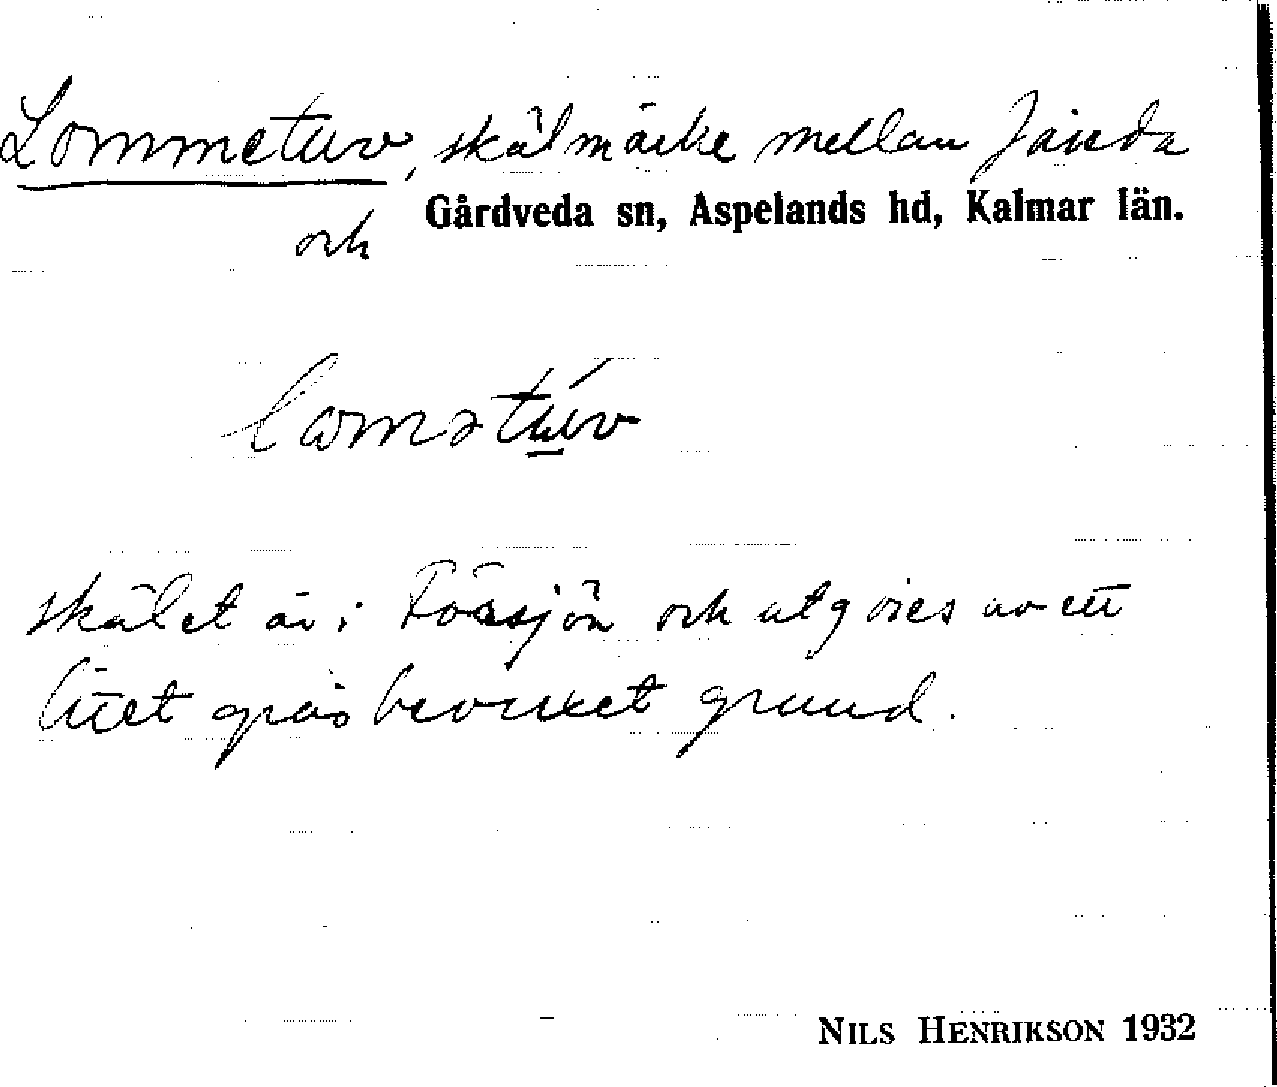 Lommetuv, skälmärke mellan Järeda
och Gårdveda sn, Aspelands hd, Kalmar län.
lomətúv
skälet är i Försjön och utgöres av ett
litet gräsbevuxet grund.
NILS HENRIKSON 1932